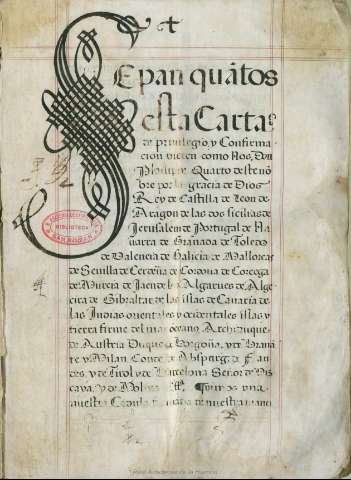 Sepan quãtos
esta Carta
de privilegio, y Confirma
cion vieren como Nos, Don
Phelipe Quarto deste nõ
bre por la gracia de Dios
Rey de Castilla de Leon de
Aragon de las dos sicilias de
Jerusalem de Portugal de Na
varra de Granada de Toledo
de Valencia de Galicia de Mallorcas
de Sevilla de Cerdeña de Cordova de Corcega
de Murcia de Jaen de los Algarves de Alge
cira de Gibraltar de las islas de Canaria de
las Indias orientales y ocidentales islas y
tierra firme del mar oceano Archiduque
de Austria Duque de Borgoña, y de Brava
te y Milan Conde de Abspurg de Flan
des, y de Tirol y de Barcelona Señor de Viz
caya, y de Molina
nuestra Cedula firmada de nuestra mano
BIBLIOTECA